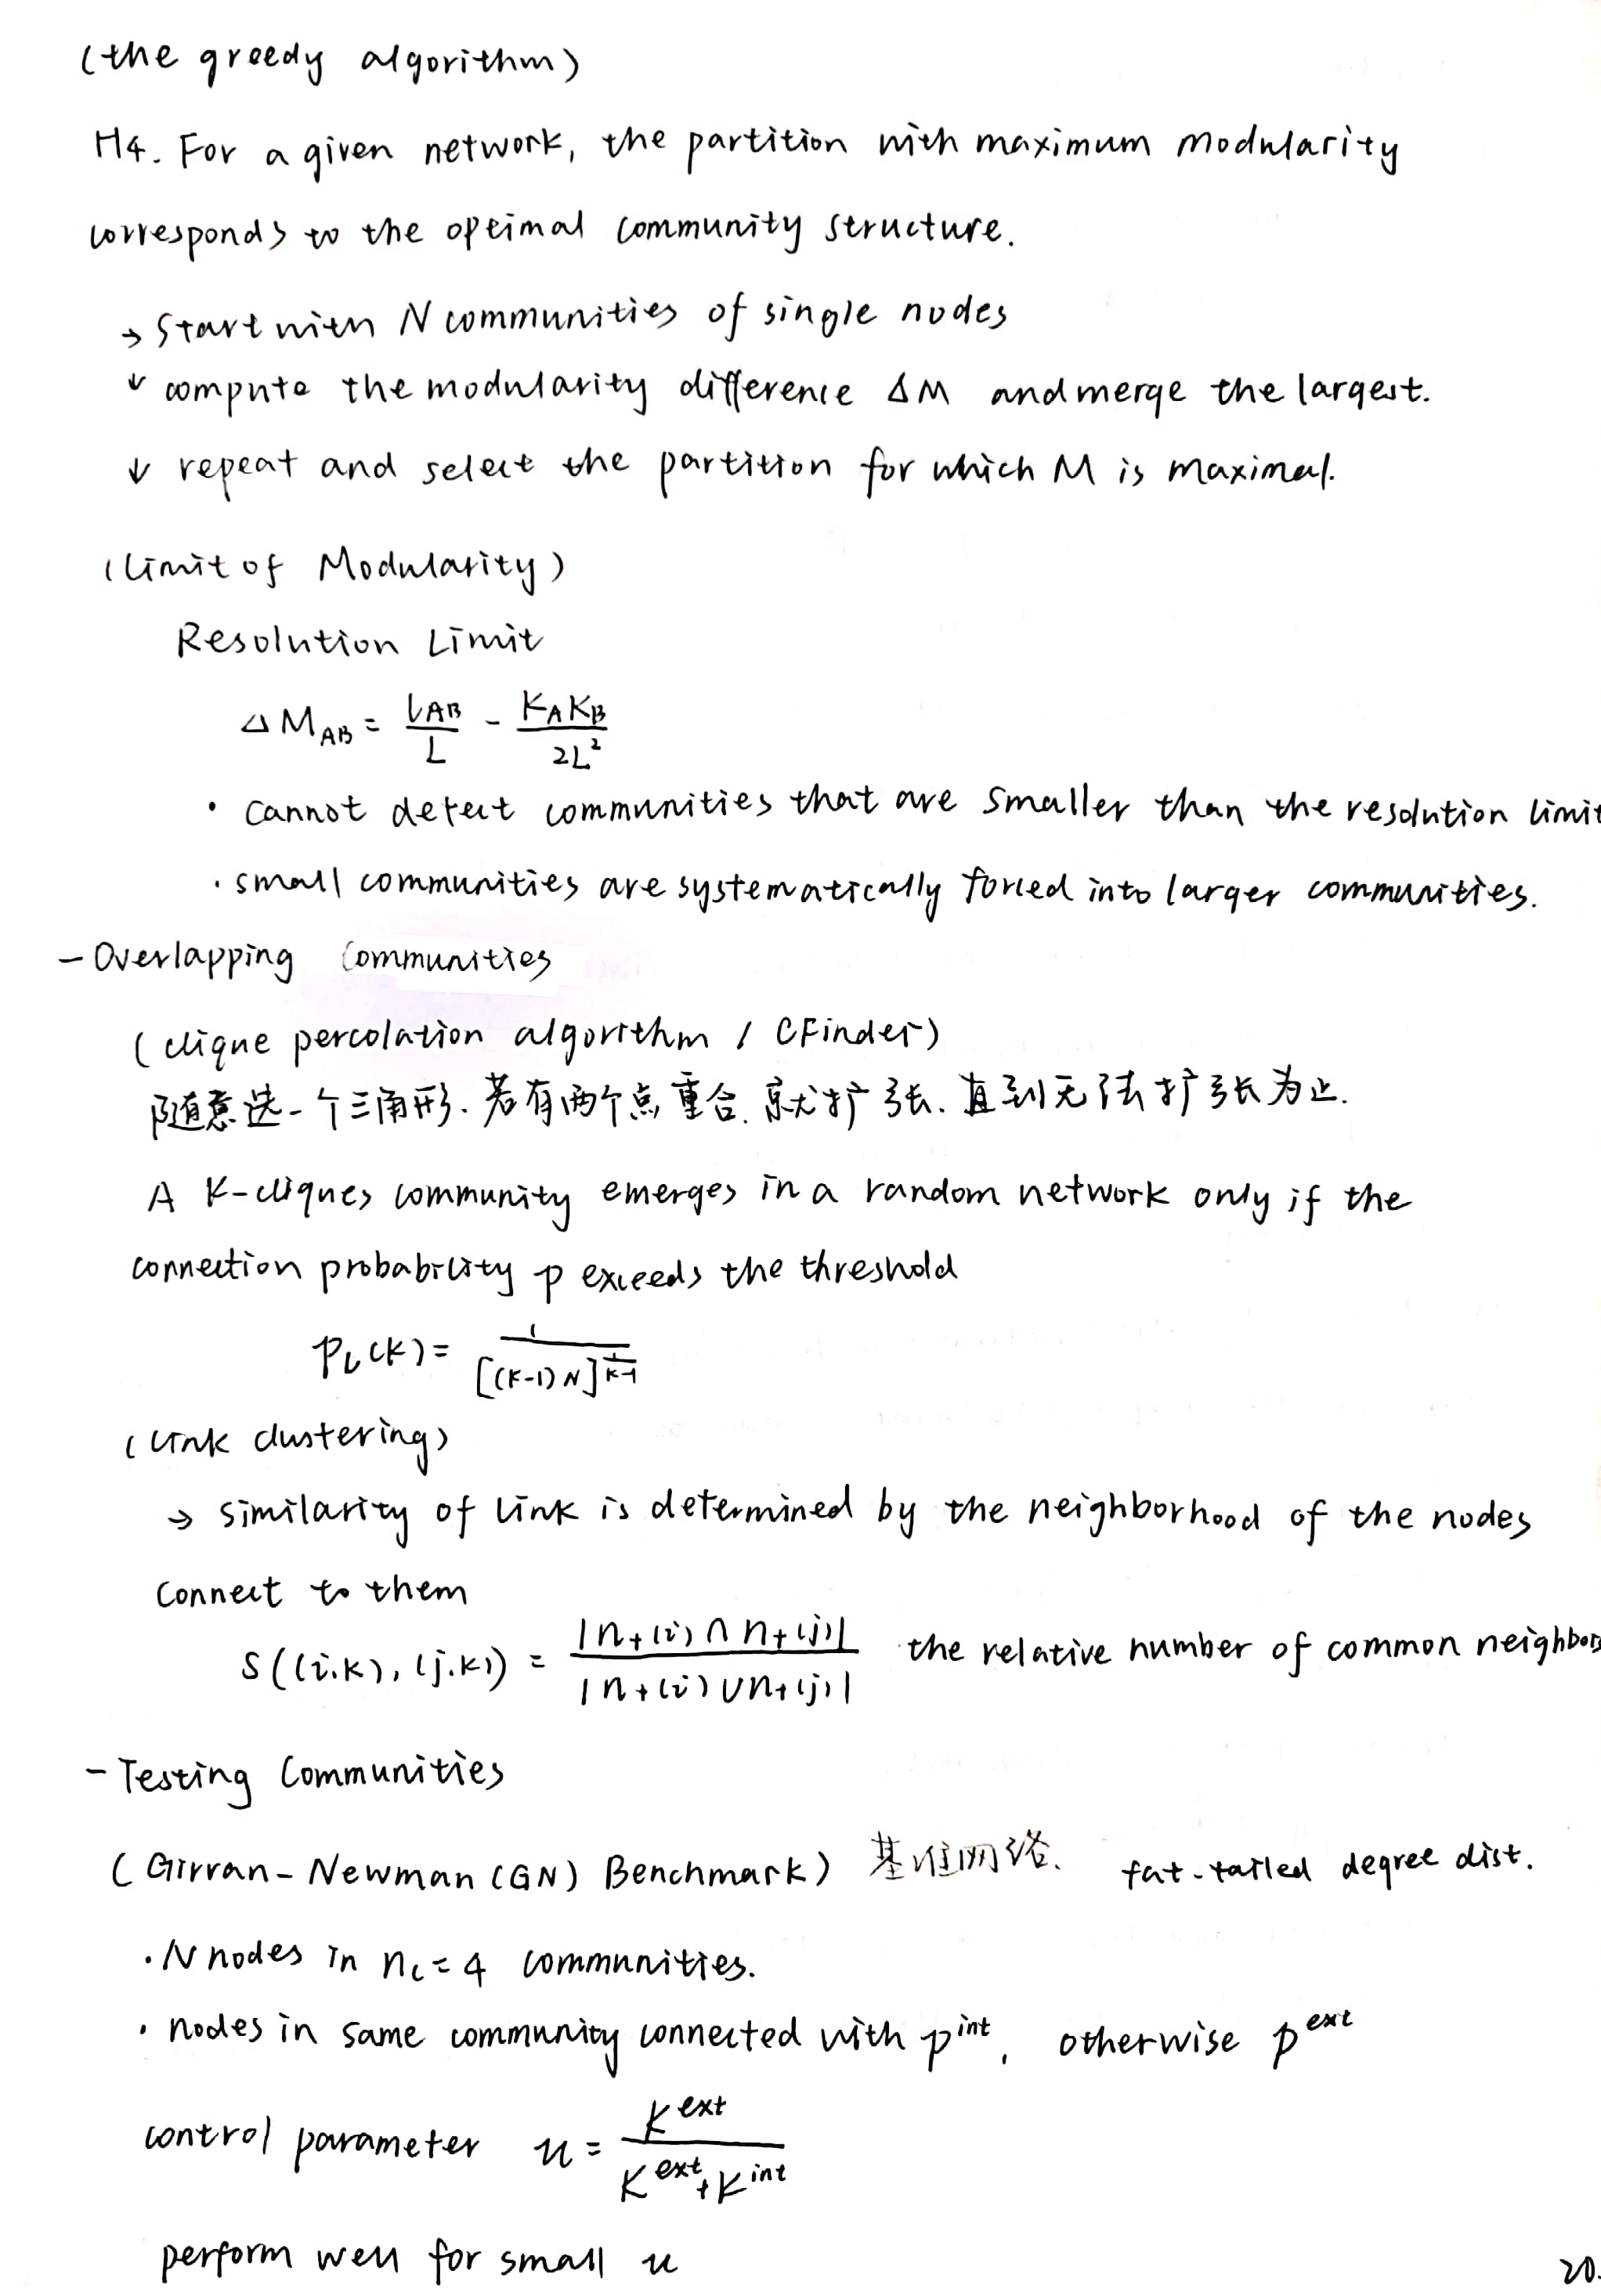 (the greedy algorithm)
H4. For a given network, the partition with maximum modularity
corresponds to the optimal community structure.
→ Start with N communities of single nodes
↓ compute the modularity difference ΔM and merge the largest.
↓ repeat and select the partition for which M is maximal.
(limit of Modularity)
Resolution Limit
ΔM_AB = l_AB / L - K_A K_B / 2L²
· cannot detect communities that are smaller than the resolution limit
· small communities are systematically forced into larger communities.
- Overlapping Communities
(clique percolation algorithm / CFinder)
随意选一个三角形. 若有两个点重合. 就扩张. 直到无法扩张为止.
A K-cliques community emerges in a random network only if the
connection probability p exceeds the threshold
P_c(K) = 1 / [(K-1)N]^(1/(K-1))
(link clustering)
→ similarity of link is determined by the neighborhood of the nodes
connect to them
S((i.k), (j.k)) = |n+(i) ∩ n+(j)| / |n+(i) ∪ n+(j)| the relative number of common neighbors
- Testing Communities
(Girvan-Newman (GN) Benchmark) 基准网络. fat-tailed degree dist.
· N nodes in n_c = 4 communities.
· nodes in same community connected with p^int, otherwise p^ext
control parameter u = K^ext / K^ext + K^int
perform well for small u
20.